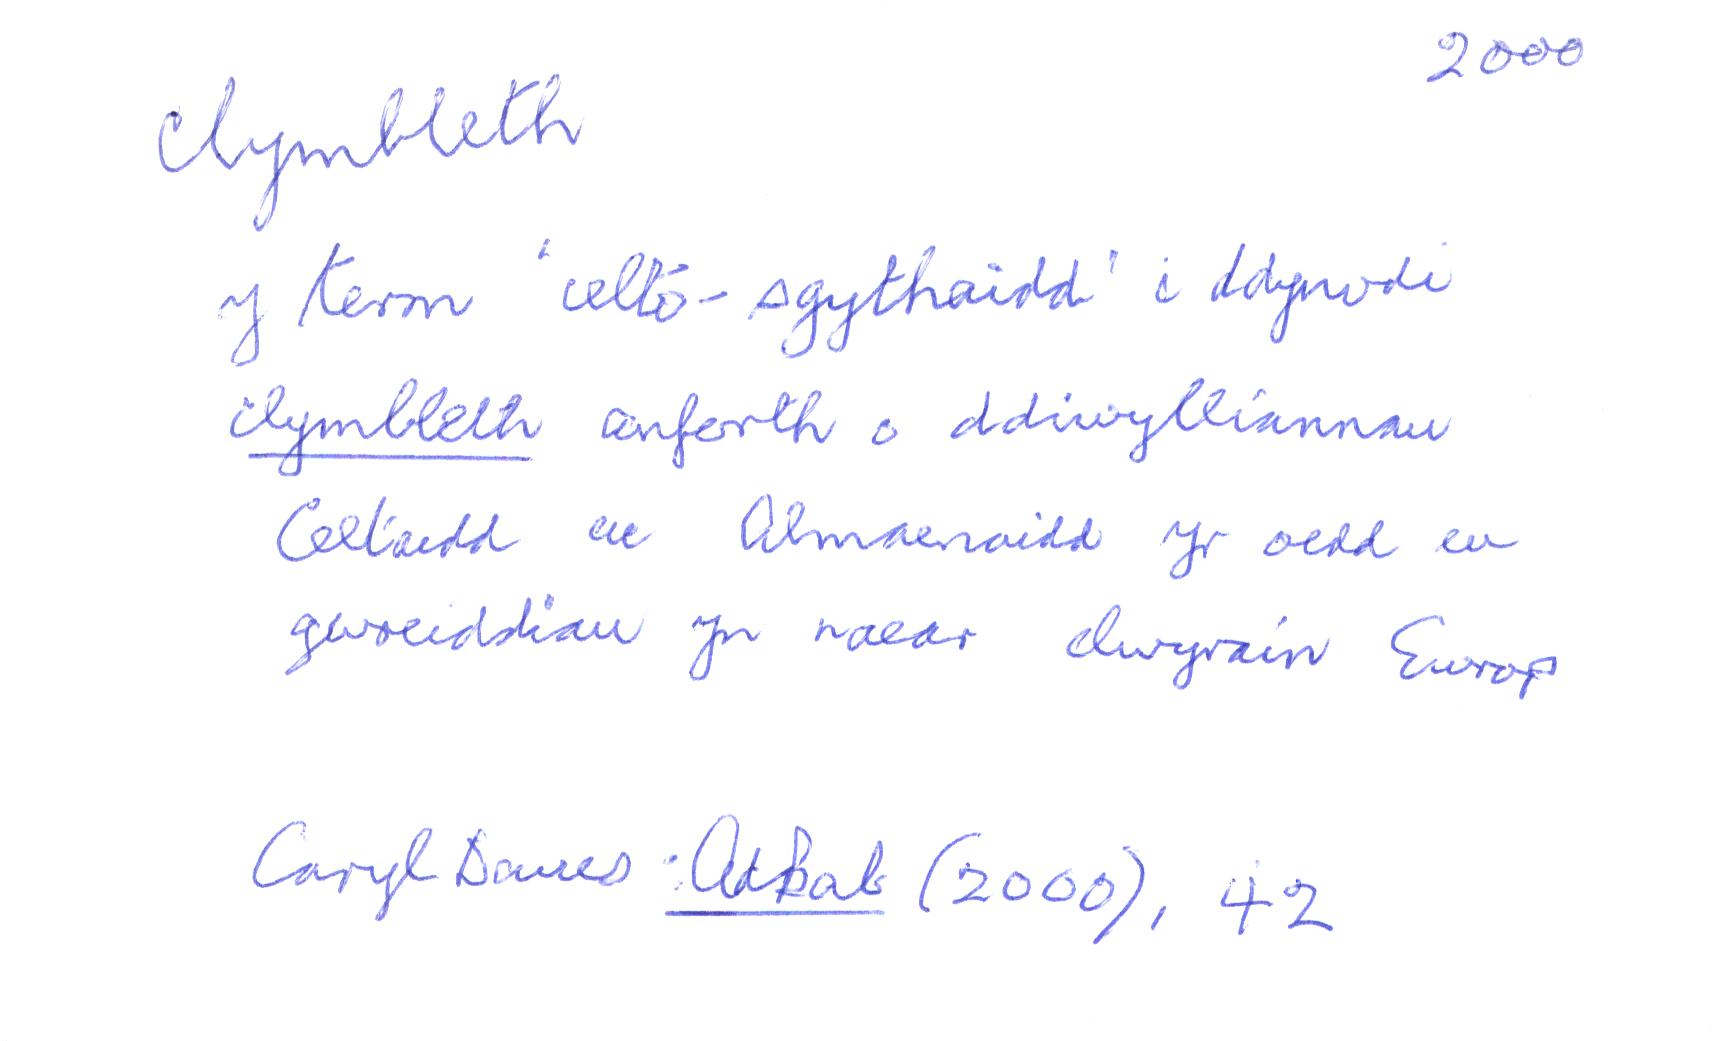 2000
clymbleth
y term 'celto-sgythaidd' i ddynodi
clymbleth anferth o ddiwylliannau
Celtaidd ac Almaenaidd yr oedd eu
gwreiddiau yn naear dwyrain Ewrop
Caryl Davies: Adfeilion Babel (2000), 42